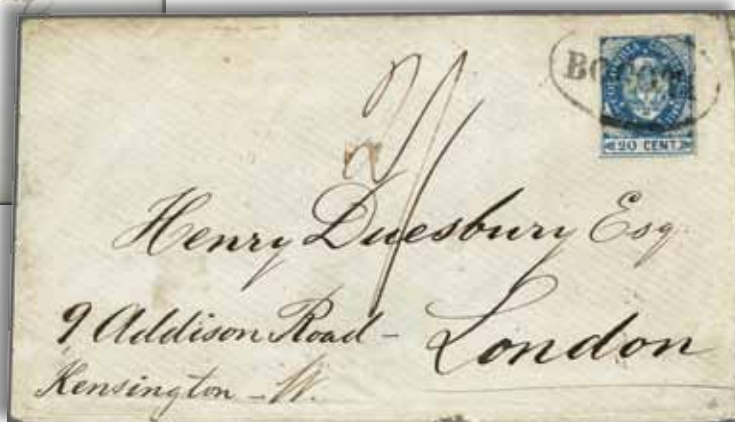 BOGOTA
20 CENT.
2/
Henry Duesbury Esq.
9 Addison Road -
London
Kensington - W.